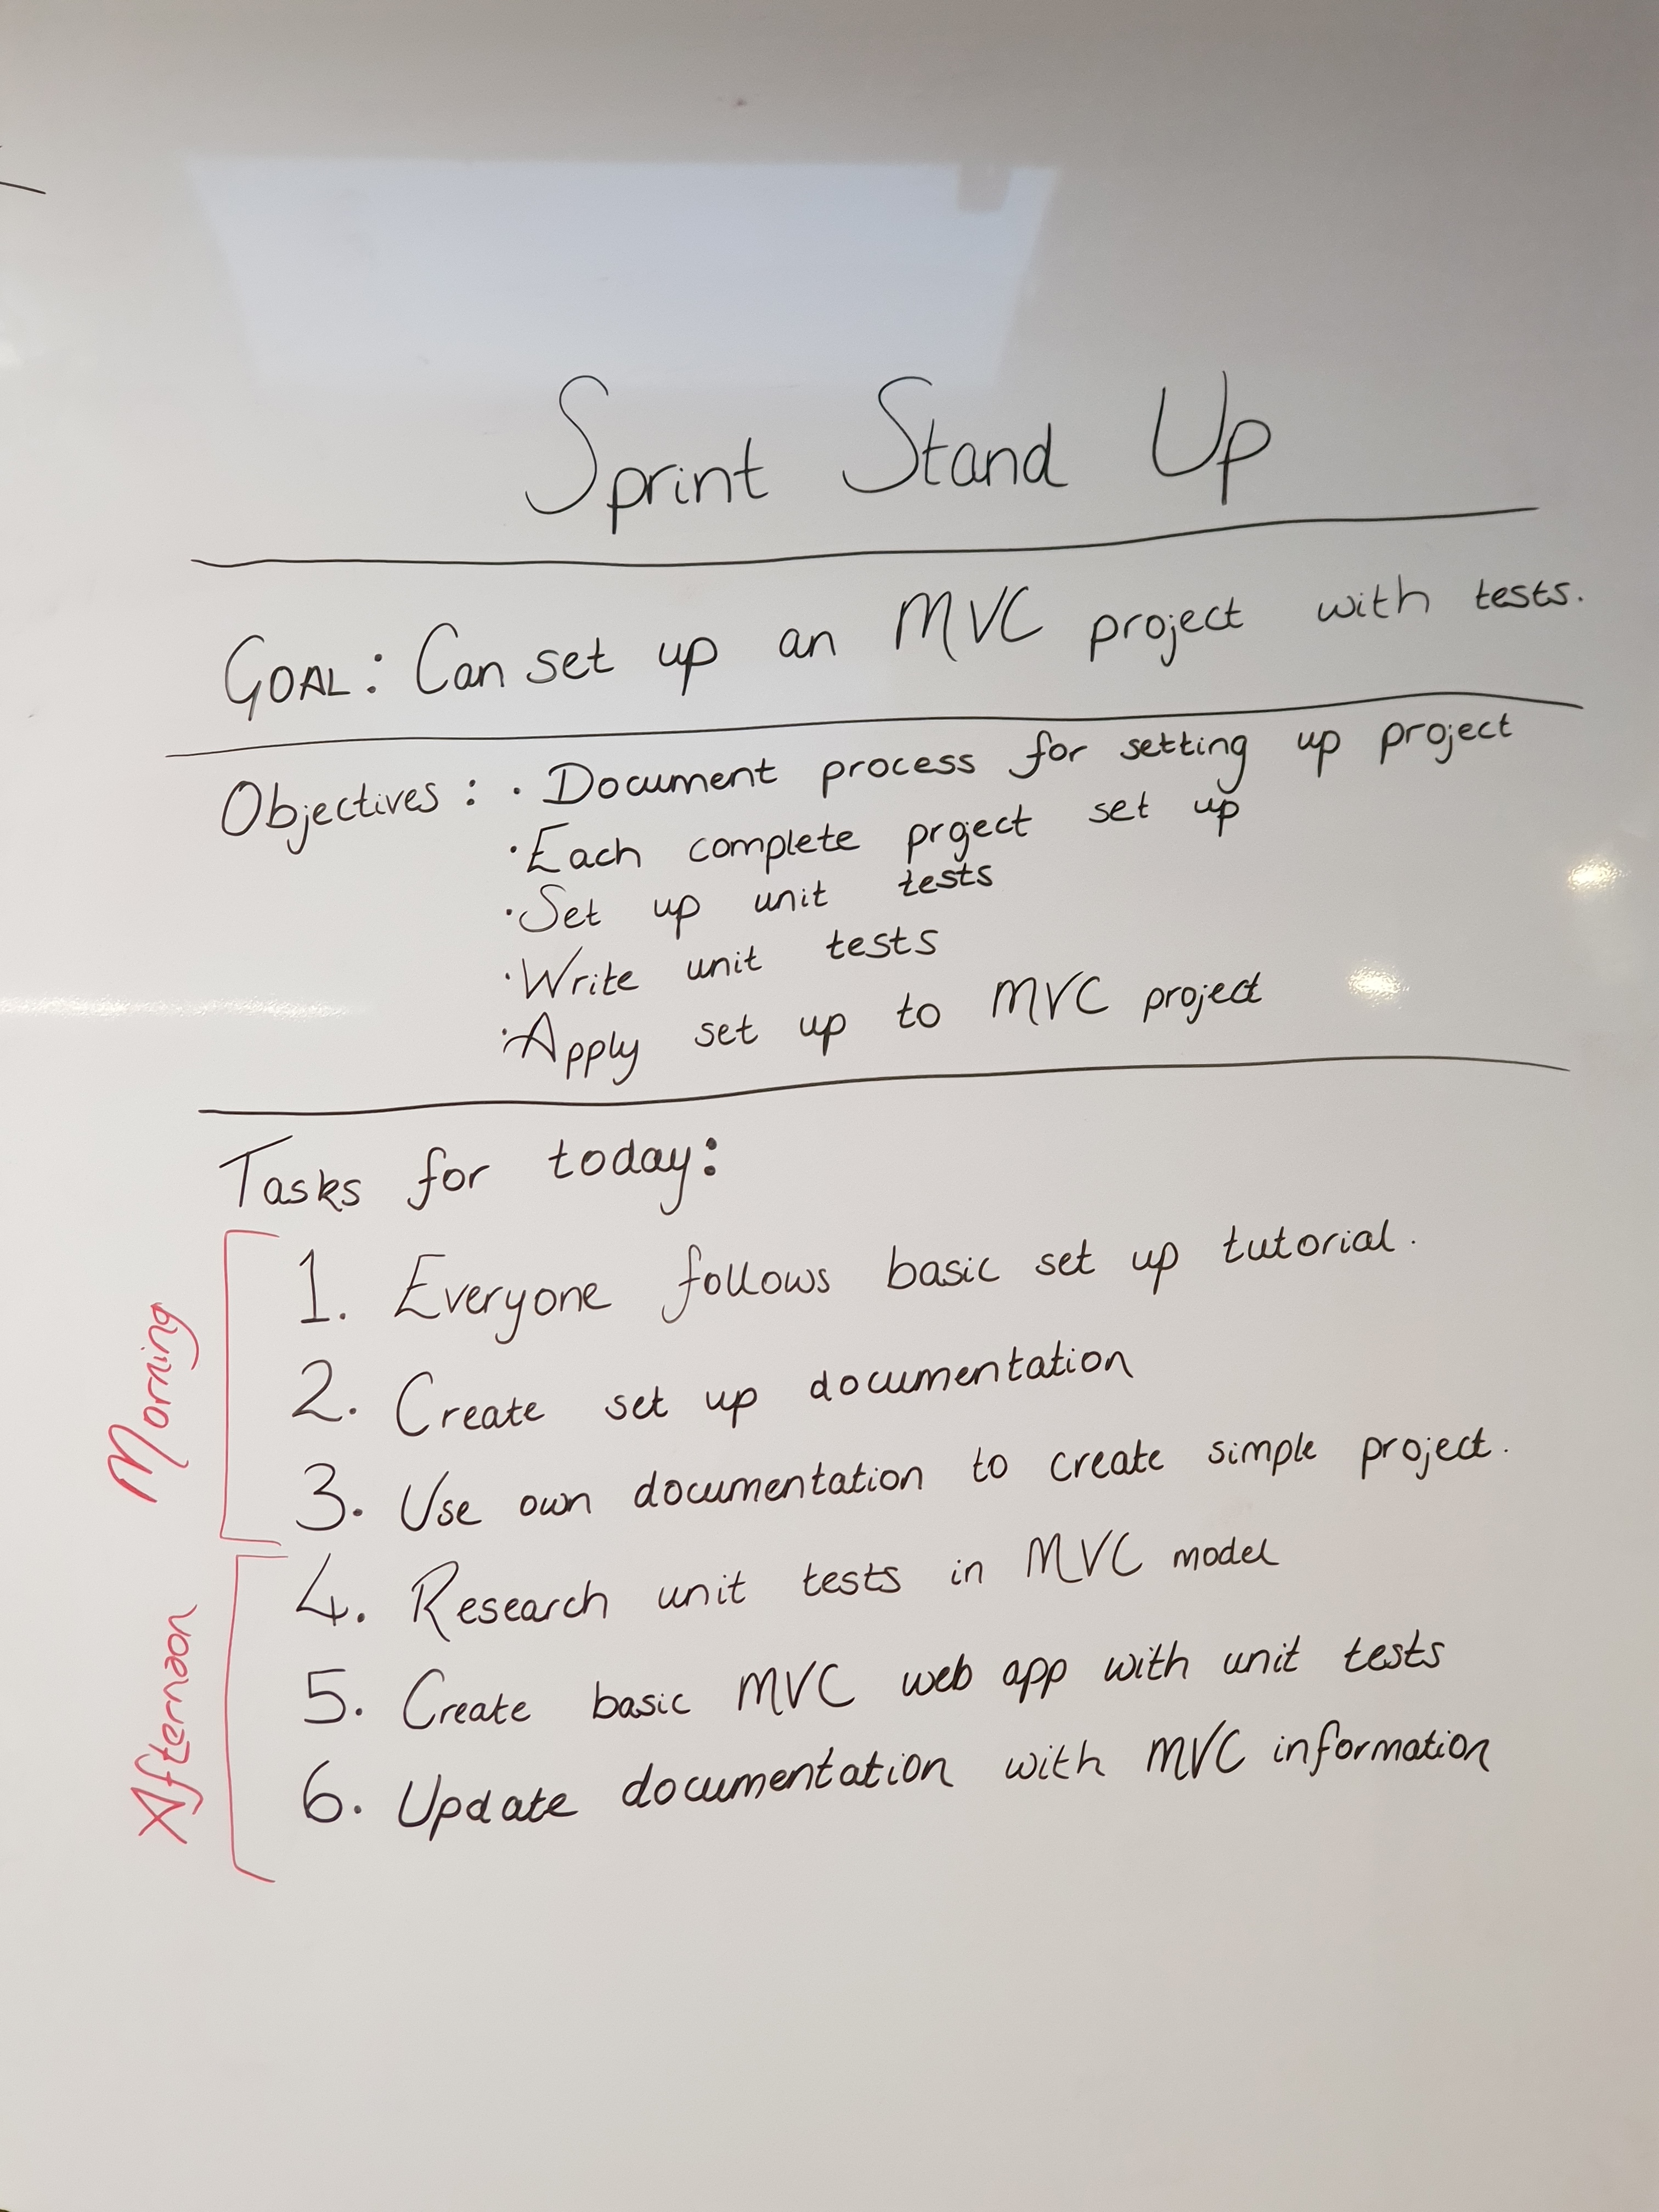 Sprint Stand Up
GOAL: Can set up an MVC project with tests.
Objectives: · Document process for setting up project
· Each complete project set up
· Set up unit tests
· Write unit tests
· Apply set up to MVC project
Tasks for today:
Morning
1. Everyone follows basic set up tutorial.
2. Create set up documentation
3. Use own documentation to create simple project.
Afternoon
4. Research unit tests in MVC model
5. Create basic MVC web app with unit tests
6. Update documentation with MVC information